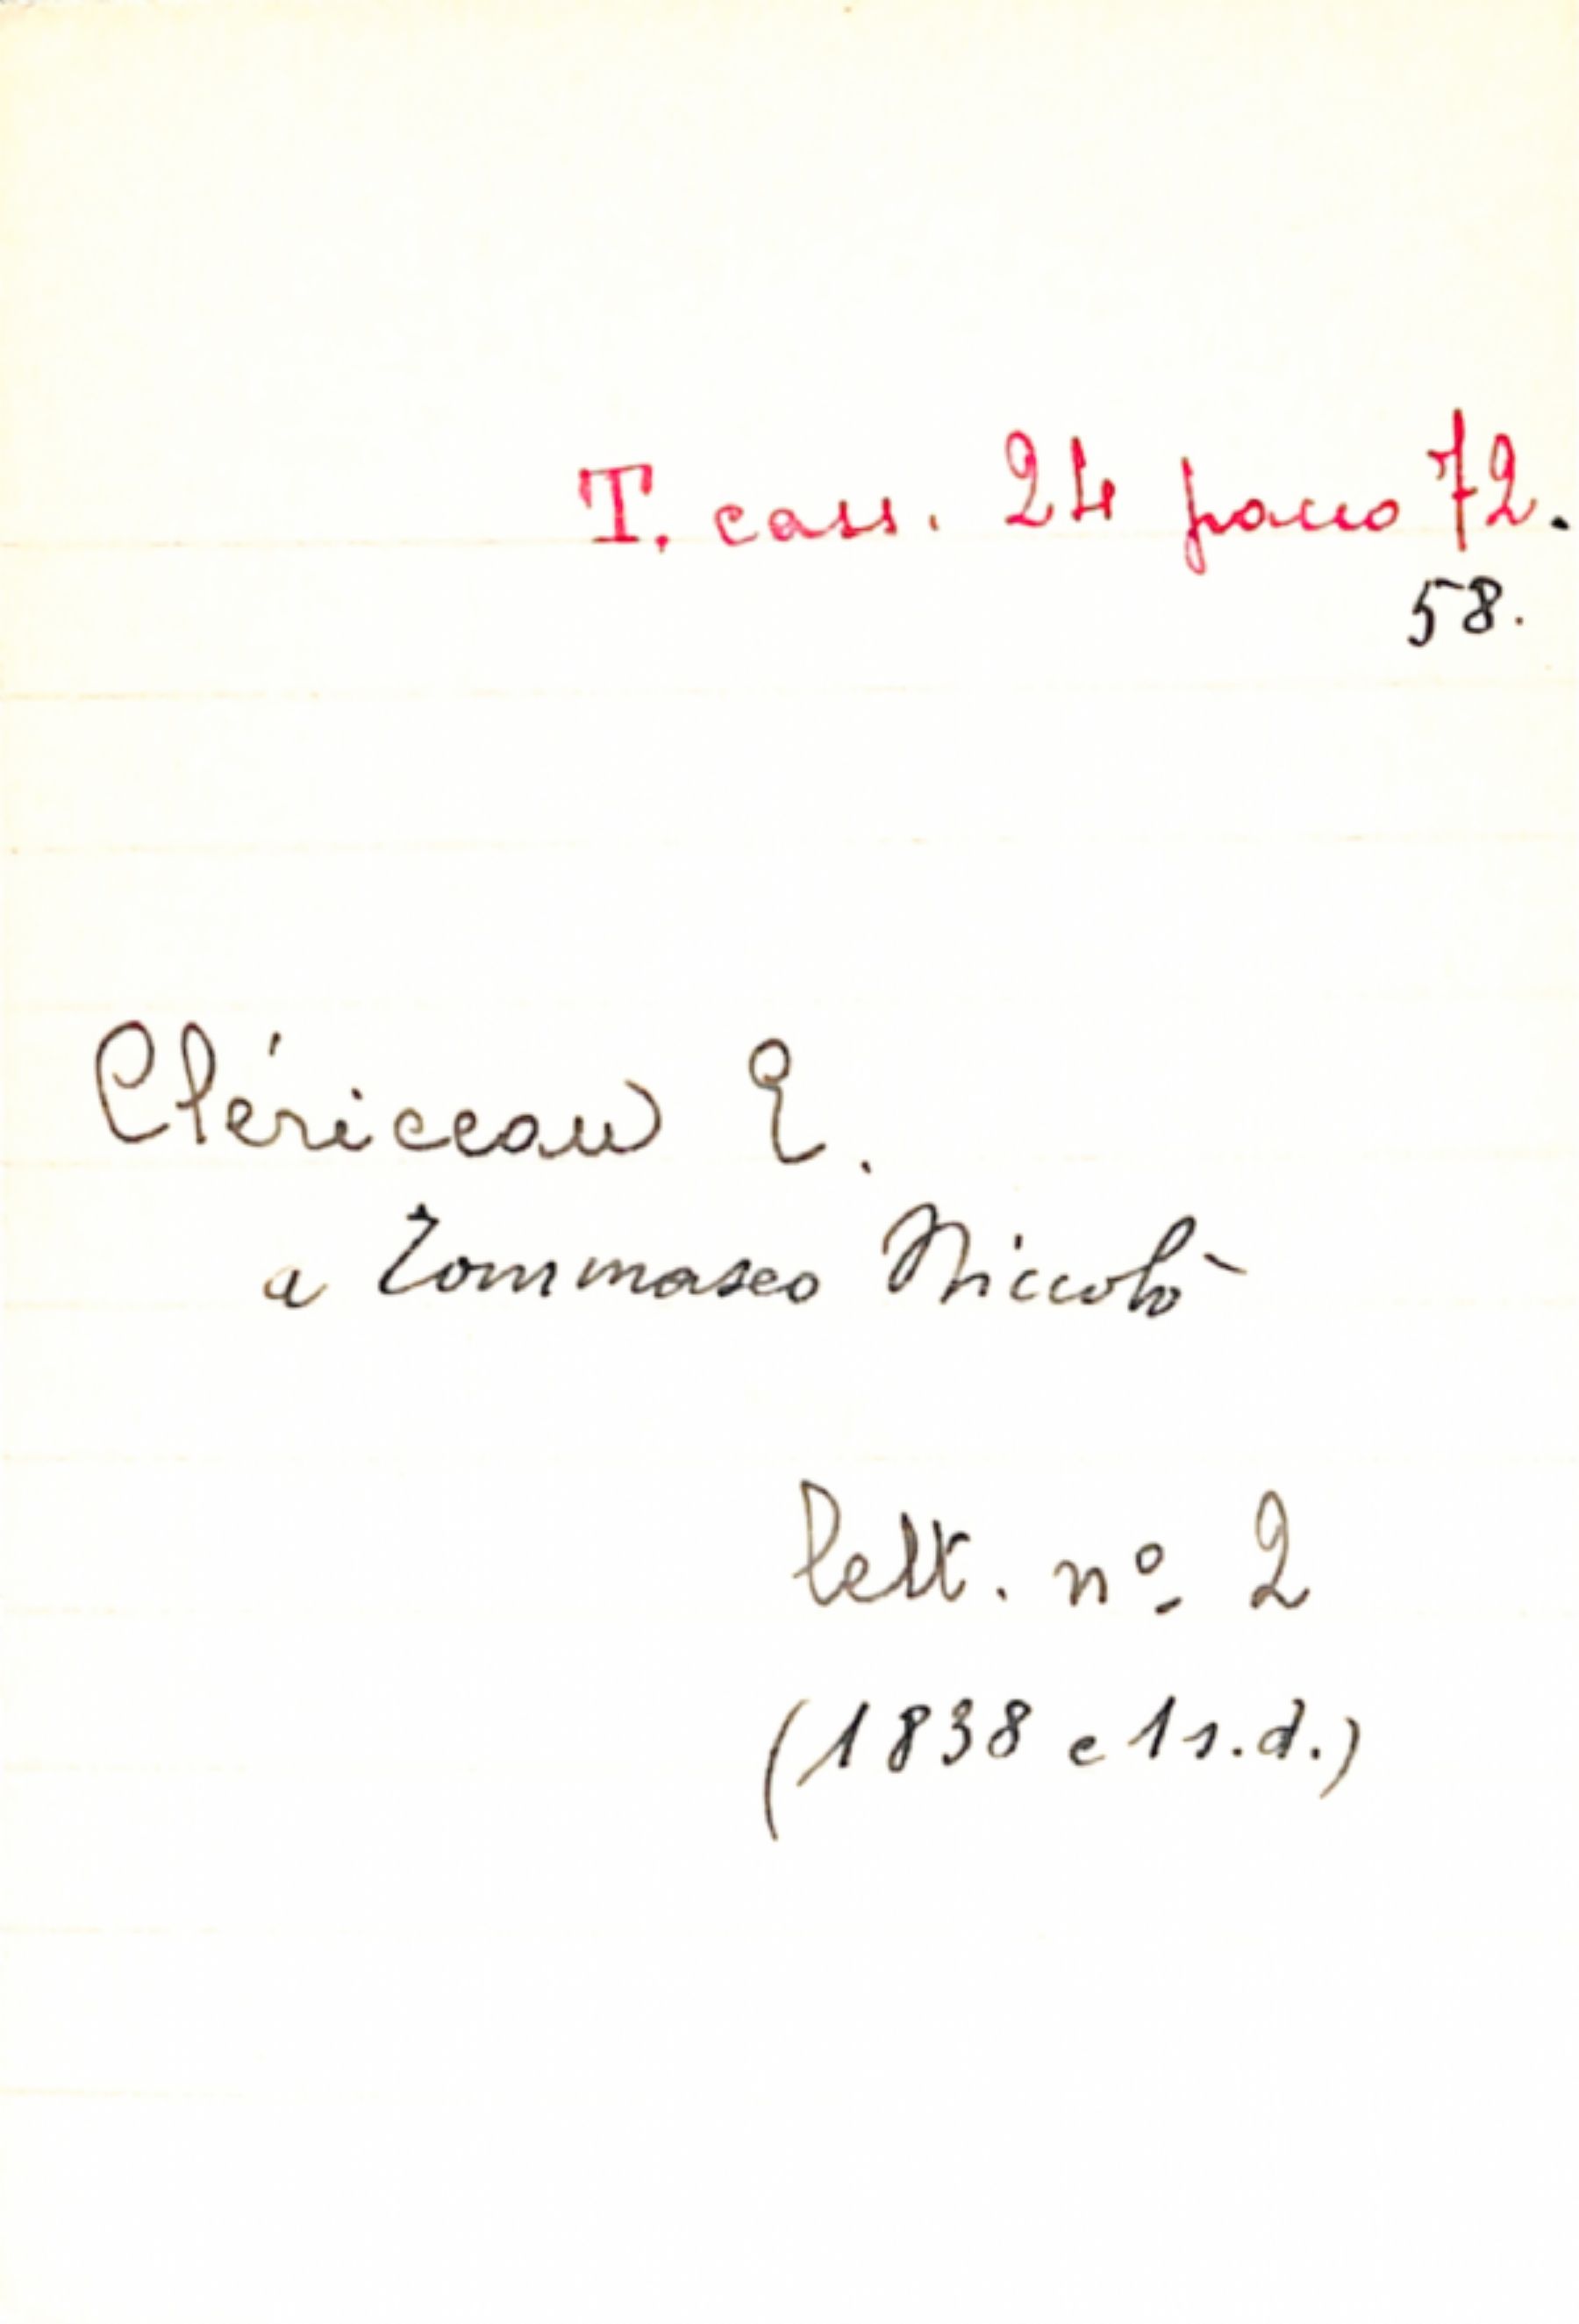 T. cass. 24 pacco 72.
58.
Clériceau E.
a Tommaseo Niccolò
lett. nº 2
(1838 e 1 s.d.)